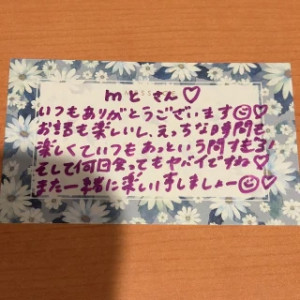 mとさん♡
いつもありがとうございます☺♡
お話も楽しいし、えっちな時間も
楽しくていつもあっという間すぎる!
そして何回会ってもヤバイですね♡
また一緒に楽しい事しましょー☺♡